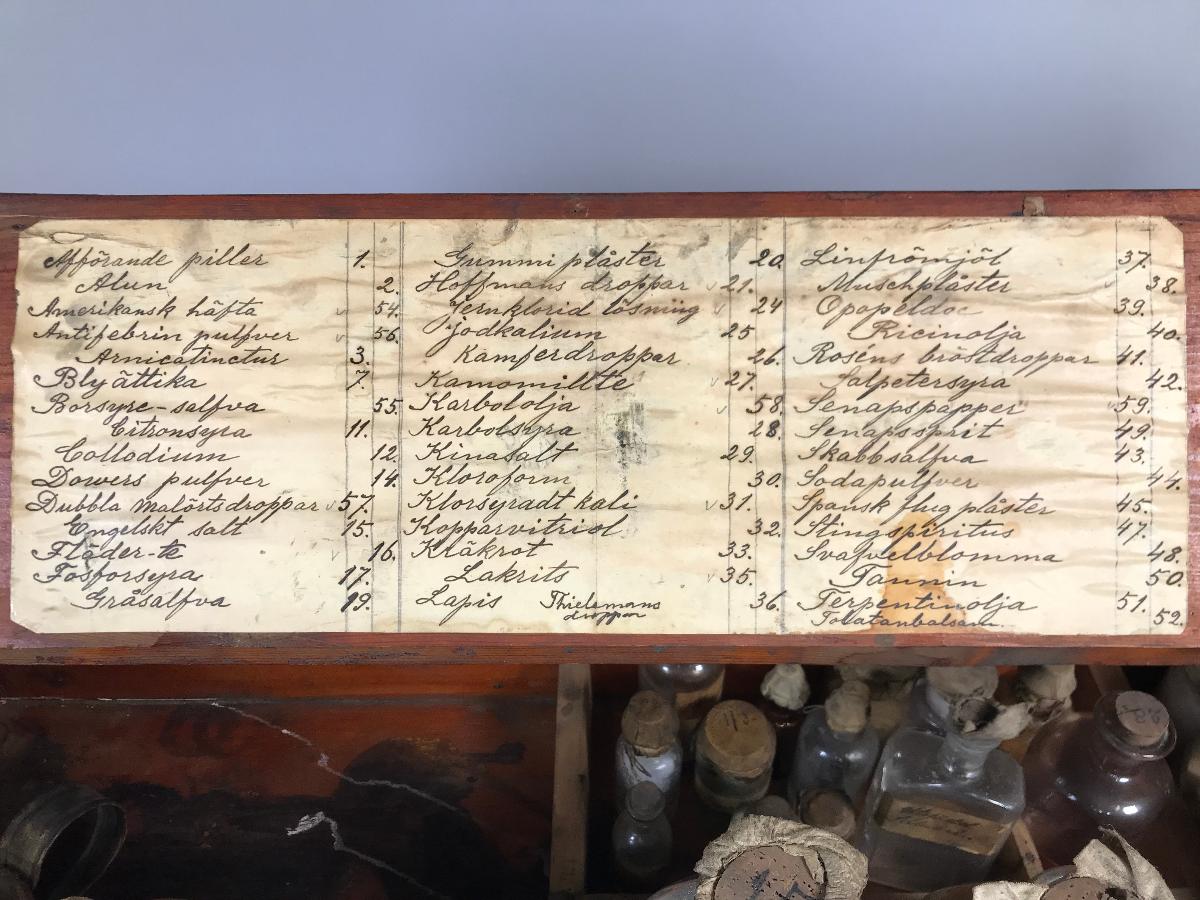 Afförande piller 1.
Alun 2.
Amerikansk häfta v 54.
Antifebrin pulfver v 56.
Arnicatinctur 3.
Blyättika 7.
Borsyre-salfva 55.
Citronsyra 11.
Collodium 12.
Dowers pulfver 14.
Dubbla malörtsdroppar v 57.
Engelskt salt 15.
Fläder-te v 16.
Fosforsyra 17.
Gråsalfva 19.
Gummi plåster 20.
Hoffmans droppar v 21.
Jernklorid lösning v 24
Jodkalium 25
Kamferdroppar 26.
Kamomillte v 27.
Karbololja v 58.
Karbolsyra 28.
Kinasalt 29.
Kloroform 30.
Klorsyradt kali v 31.
Kopparvitriol 32.
Kräkrot 33.
Lakrits v 35.
Lapis 36.
Thielemans
droppar
Linfrömjöl 37.
Muschplåster v 38.
Opopeldoc 39.
Ricinolja 40.
Roséns bröstdroppar 41.
Salpetersyra 42.
Senapspapper v 59.
Senapssprit 49.
Skabbsalfva 43.
Sodapulfver 44.
Spansk flugplåster 45.
Stingspiritus 47.
Svafvelblomma 48.
Tannin 50.
Terpentinolja 51.
Tolutanbalsam 52.
28.